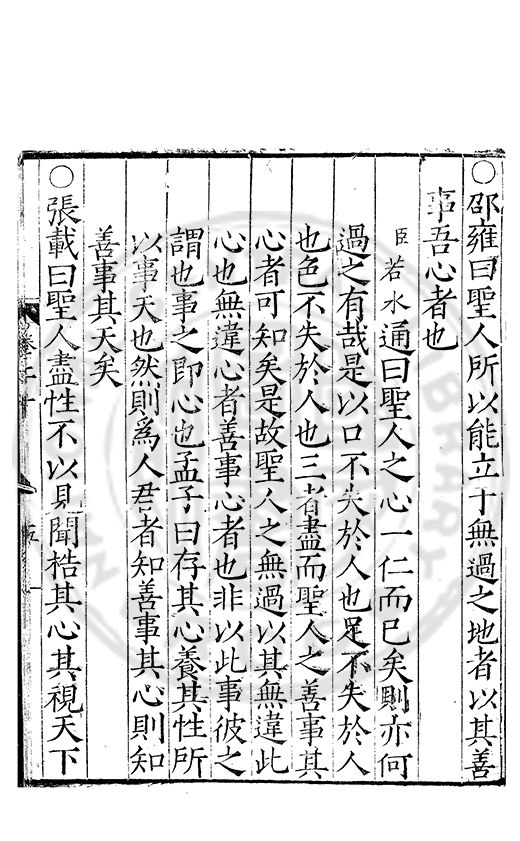 ○邵雍曰聖人所以能立于無過之地者以其善
事吾心者也
臣若水通曰聖人之心一仁而已矣則亦何
過之有哉是以口不失於人也足不失於人
也色不失於人也三者盡而聖人之善事其
心者可知矣是故聖人之無過以其無違此
心也無違心者善事心者也非以此事彼之
謂也事之即心也孟子曰存其心養其性所
以事天也然則爲人君者知善事其心則知
善事其天矣
○張載曰聖人盡性不以見聞梏其心其視天下